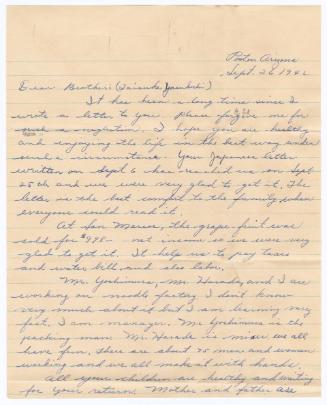 Poston Arizona
Sept. 26 1942
Dear Brother: (Daisuke
It has been a long time since I
wrote a letter to you. Please forgive me for
such a negletion. I hope you are healthy
and enjoying the life in the best way under
such a circumstance. Your Japanese letter
written on Sept 6 has reached us on Sept
25th and we were very glad to get it. The
letter is the best comfort to the family, when
everyone could read it.
At San Marcos, the grape fruit was
sold for $998 — net income so we were very
glad to get it. It help us to pay taxes
and water bill, and also labor.
Mr. Yoshimura, Mr. Harada, and I are
working on noodle factory I don't know
very much about it but I am learning very
fast. I am manager. Mr Yoshimura is the
man. Mr. Harada is mixer we all
have fun. There are about 75 men and woman
working and we all make it with hands.
All your children are healthy and waiting
for your return. Mother and father are